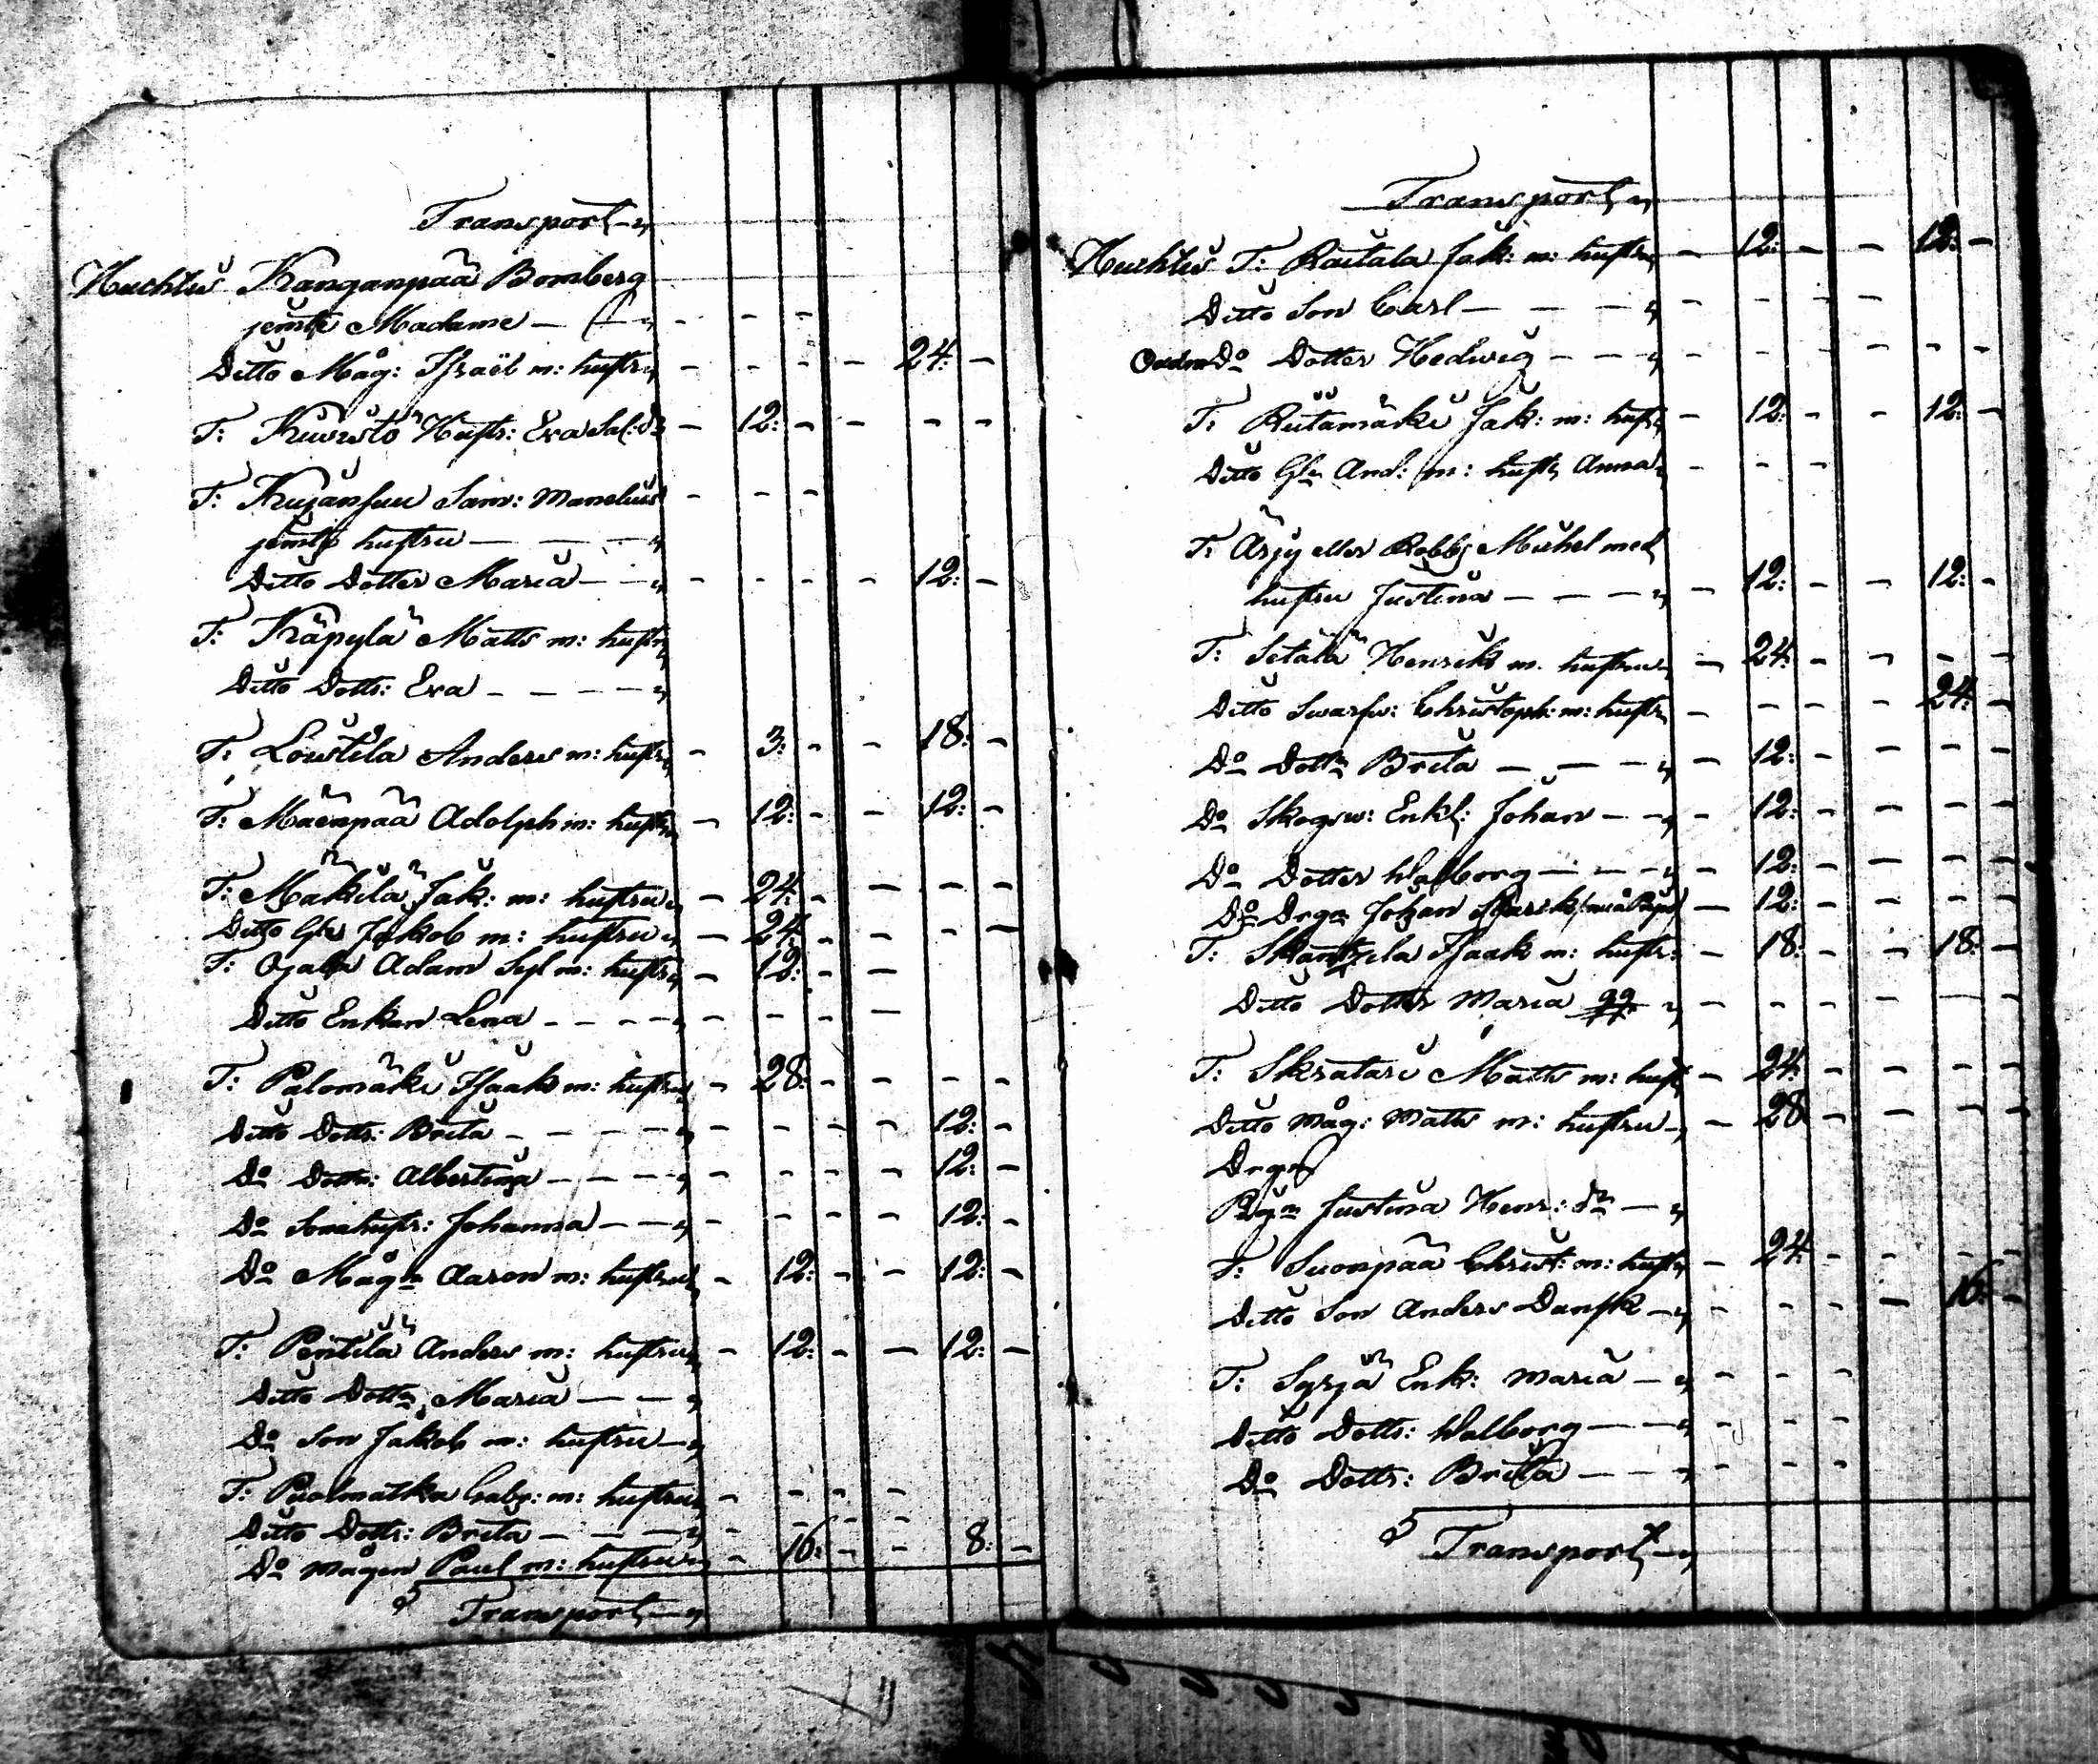 Transport
Huchtis Kanganpää Bomberg
jemte Madame — — — — —
Ditto Måg: Israël m: hustr — — — — 24: —
T: Kuristo Hustr: Eva Sal: dr — 12: — — — —
T: Kujansuu Sam: Manelius — — —
jemte hustru — — —
Ditto Dotter Maria — — — — — — 12: —
T: Käpylä Matts m: hustr
Ditto Dottr: Eva — — — —
T: Loustila Anders m: hustr — 3: — — 18: —
T: Mäenpää Adolph m: hustr — 12: — — 12: —
T: Mäkilä Jak: m: hustru — 24: — — — —
Ditto Gle Jakob m: hustru — 24: — — — —
T: Ojala Adam Syl m: hustr — 12: — —
Ditto Enkan Lena — — — — — — — —
T: Palomäki Isaak m: hustru — 28: — — — —
Ditto Dottr: Brita — — — — — — — — 12: —
Do Dottr: Albertina — — — — — — — — 12: —
Do Sonahustr: Johanna — — — — — — 12: —
Do Mågn Aaron m: hustru — 12: — — 12: —
T: Penttilä Anders m: hustru — 12: — — 12: —
Ditto Dottr Maria — — —
Do Son Jakob m: hustru —
T: Puolmatka Gabr: m: hustru — — — —
Ditto Dottr: Brita — — — — — — —
Do Mågen Paul m: hustru — 16: — — 8: —
Transport
Transport
Huchtis T: Raitala Jak: m: hustr — 12: — — 12: —
Ditto Son Carl — — — — — — —
Do Dotter Hedwig — — — — — — — — —
T: Riitamäki Jak: m: hustr — 12: — — 12: —
Ditto Gle And: m: hustr Anna — — —
T: Äijy eller Robbs Michel med
hustru Justina — — — — 12: — — 12: —
T: Setälä Henrik m. hustru — 24: — — — —
Ditto Swarfw: Christoph: m: hustr — — — — 24: —
Do Dottr Brita — — — — 12: — — — —
Do Skogsw: Enkl: Johan — — — 12: — — — —
Do Dotter Walborg — — — — 12: — — — —
Do Drgn Johan — 12: — — — —
T: Skantzila Isaak m: hustr: — 18: — — 18: —
Ditto Dotter Maria — — — — — —
T: Skratari Matts m: hust — 24: — — — —
Ditto Måg: Matts m: hustru — 28 — — — —
Drgn
Pign Justina Henr: dr —
T: Suonpää Christ: m: hustr — 24: — — — —
Ditto Son Anders Dansk — — — — — 16: —
T: Syrjä Enk: Maria — — — —
Ditto Dottr: Walborg — — — — —
Do Dottr: Brita — — — — — —
Transport